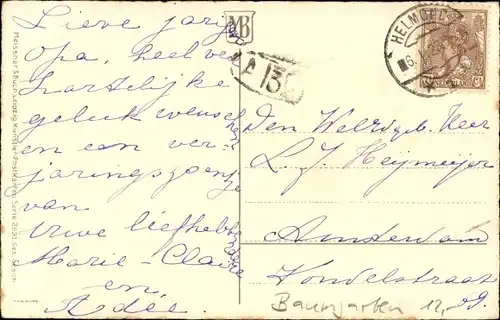 Lieve jarige
Opa, heel veel
hartelijke
geluk wenschen
en een ver-
jaringszoentje
van
Uwe liefhebbende
Marie-Claire
en
Adée.
MB
A 13
HELMOND
NEDERLAND
Den Weledgeb. Heer
L. J. Heijmeijer
Amsterdam
Vondelstraat
59.
Baumgarten 12,-
Meissner & Buch, Leipzig Künstler-Postkarten Serie